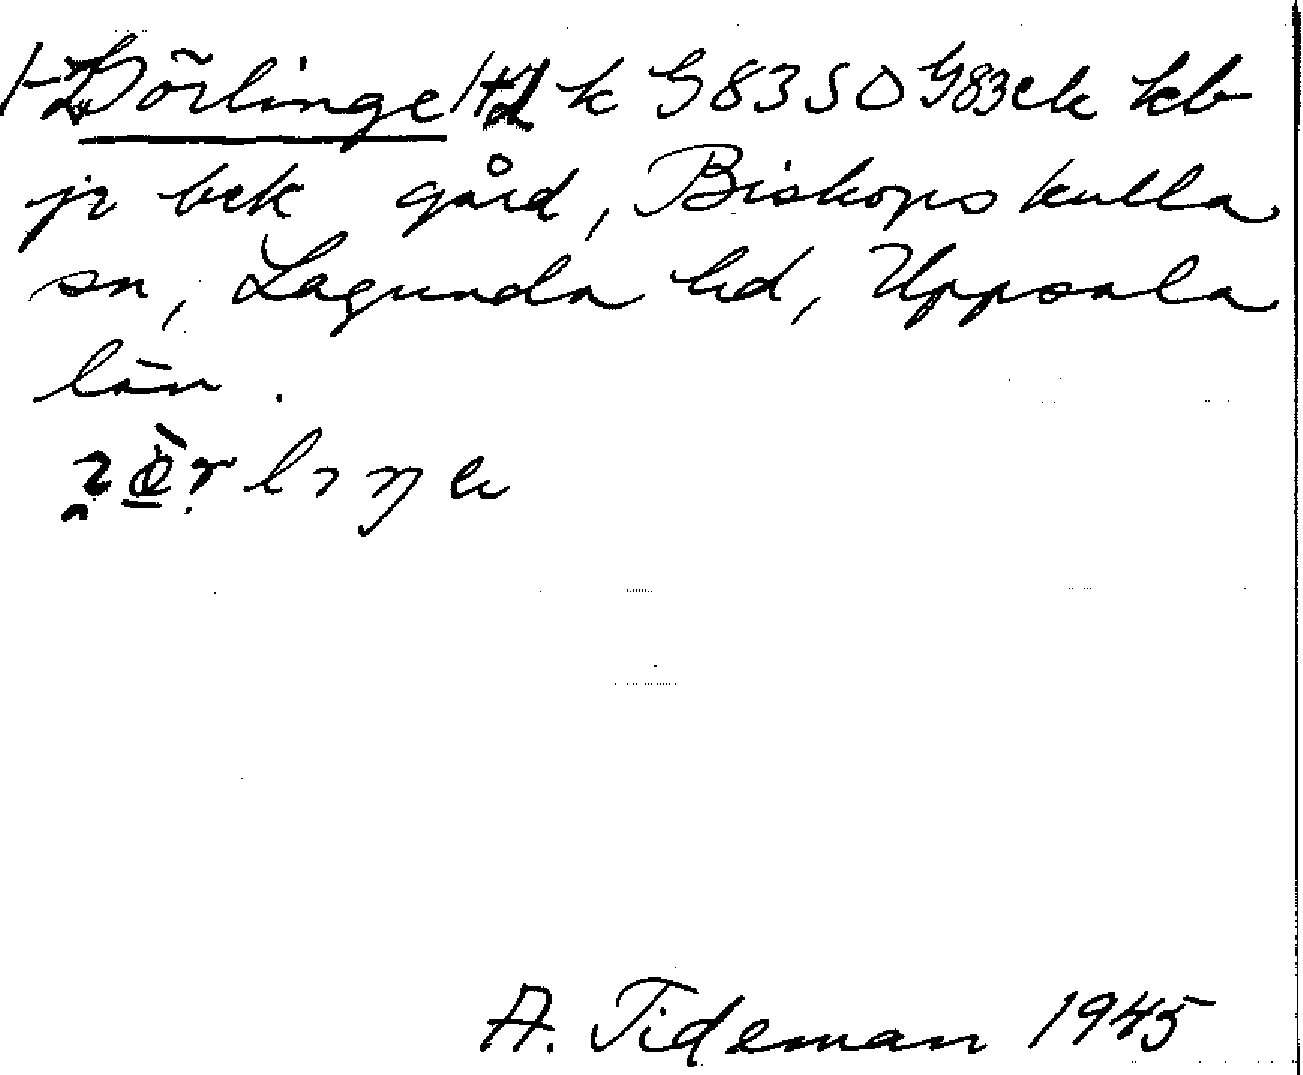 Dörlinge k G83 SO G83 ek kb
jr bek gård, Biskopskulla
sn, Lagunda hd, Uppsala
län.
A. Tideman 1945